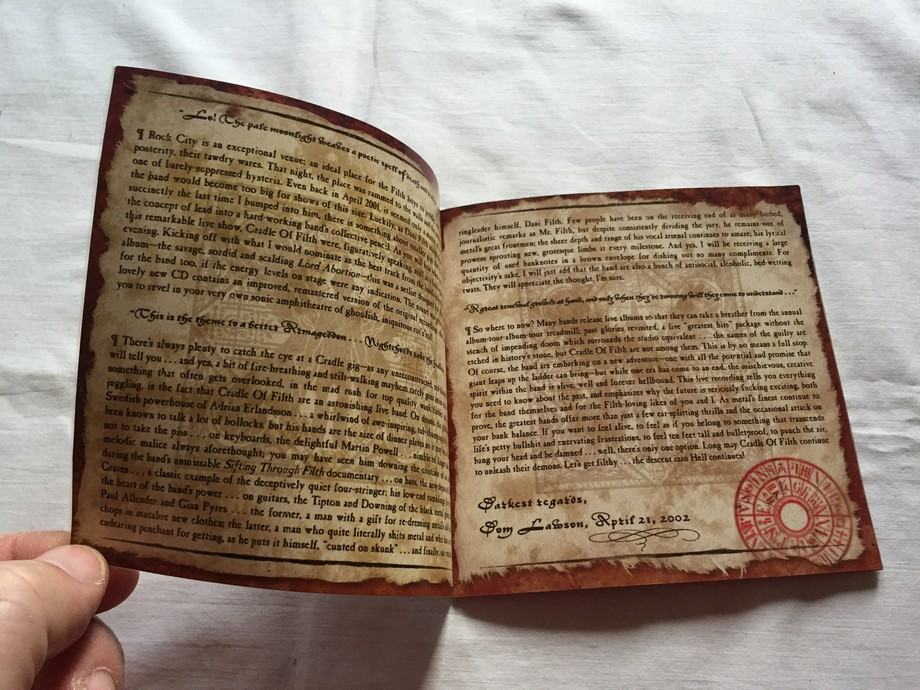 "Lo! The pale moonlight weaves a poetic spell of death and
¶ Rock City is an exceptional venue; an ideal place for the Filth boys to
posterity, their tawdry wares. That night, the place was rammed to the walls
one of barely-suppressed hysteria. Even back in April 2001, it seemed
the band would become too big for shows of this size. Luckily, as
succinctly the last time I bumped into him, there is something about
the concept of lead into a hard-working band's collective pencil. As you will
this remarkable live show, Cradle Of Filth were, figuratively speaking, still
evening. Kicking off with what I would nominate as the best track from the
album—the savage, sordid and scalding Lord Abortion—this was a setlist designed
for the band too, if the energy levels on stage were any indication. The sound
lovely new CD contains an improved, remastered version of the original
you to revel in your very own sonic amphitheatre of ghoulish, iniquitous rock'n'roll
"This is the theme to a better Armageddon... Nightchords
¶ There's always plenty to catch the eye at a Cradle gig—as any unreconstructed
will tell you... and yes, a bit of fire-breathing and stilt-walking mayhem
something that often gets overlooked, in the mad rush for top quality
juggling, is the fact that Cradle Of Filth are an astonishing live band. On drums,
Swedish powerhouse of Adrian Erlandsson... a whirlwind of awe-inspiring,
been known to talk a lot of bollocks, but his hands are the size of dinner plates so
not to take the piss... on keyboards, the delightful Martin Powell...
melodic malice always aforethought; you may have seen him downing the
during the band's unmissable Sifting Through Filth documentary... on bass, the
Graves... a classic example of the deceptively quiet four-stringer; his low-end rumblings
the heart of the band's power... on guitars, the Tipton and Downing of the black metal
Paul Allender and Gian Pyres... the former, a man with a gift for re-dressing metal's
chops in macabre new clothes; the latter, a man who quite literally shits metal and who
endearing penchant for getting, as he puts it himself, "cunted on skunk"... and finally,
ringleader himself, Dani Filth. Few people have been on the receiving end of as many barbed,
journalistic remarks as Mr. Filth, but despite consistently dividing the jury, he remains one of
metal's great frontmen; the sheer depth and range of his vocal arsenal continues to amaze; his lyrical
prowess sprouting new, grotesque limbs at every milestone. And yes, I will be receiving a large
quantity of used banknotes in a brown envelope for dishing out so many compliments. For
objectivity's sake, I will just add that the band are also a bunch of antisocial, alcoholic, bed-wetting
twats. They will appreciate the thought, I'm sure.
"A great renewal growls at hand, and only when they're running will they come to understand..."
¶ So where to now? Many bands release live albums so that they can take a breather from the annual
album-tour-album-tour treadmill; past glories revisited, a live "greatest hits" package without the
stench of impending doom which surrounds the studio equivalent... the names of the guilty are
etched in history's stone, but Cradle Of Filth are not among them. This is by no means a full stop.
Of course, the band are embarking on a new adventure—one with all the potential and promise that
giant leaps up the ladder can bring—but while one era has come to an end, the mischievous, creative
spirit within the band is alive, well and forever hellbound. This live recording tells you everything
you need to know about the past, and emphasizes why the future is seriously fucking exciting, both
for the band themselves and for the Filth-loving likes of you and I. As metal's finest continue to
prove, the greatest bands offer more than just a few ear-splitting thrills and the occasional attack on
your bank balance. If you want to feel alive, to feel as if you belong to something that transcends
life's petty bullshit and enervating frustrations, to feel ten feet tall and bulletproof, to punch the air,
bang your head and be damned... well, there's only one option. Long may Cradle Of Filth continue
to unleash their demons. Let's get filthy... the descent into Hell continues!
Darkest regards,
Dom Lawson, April 21, 2002